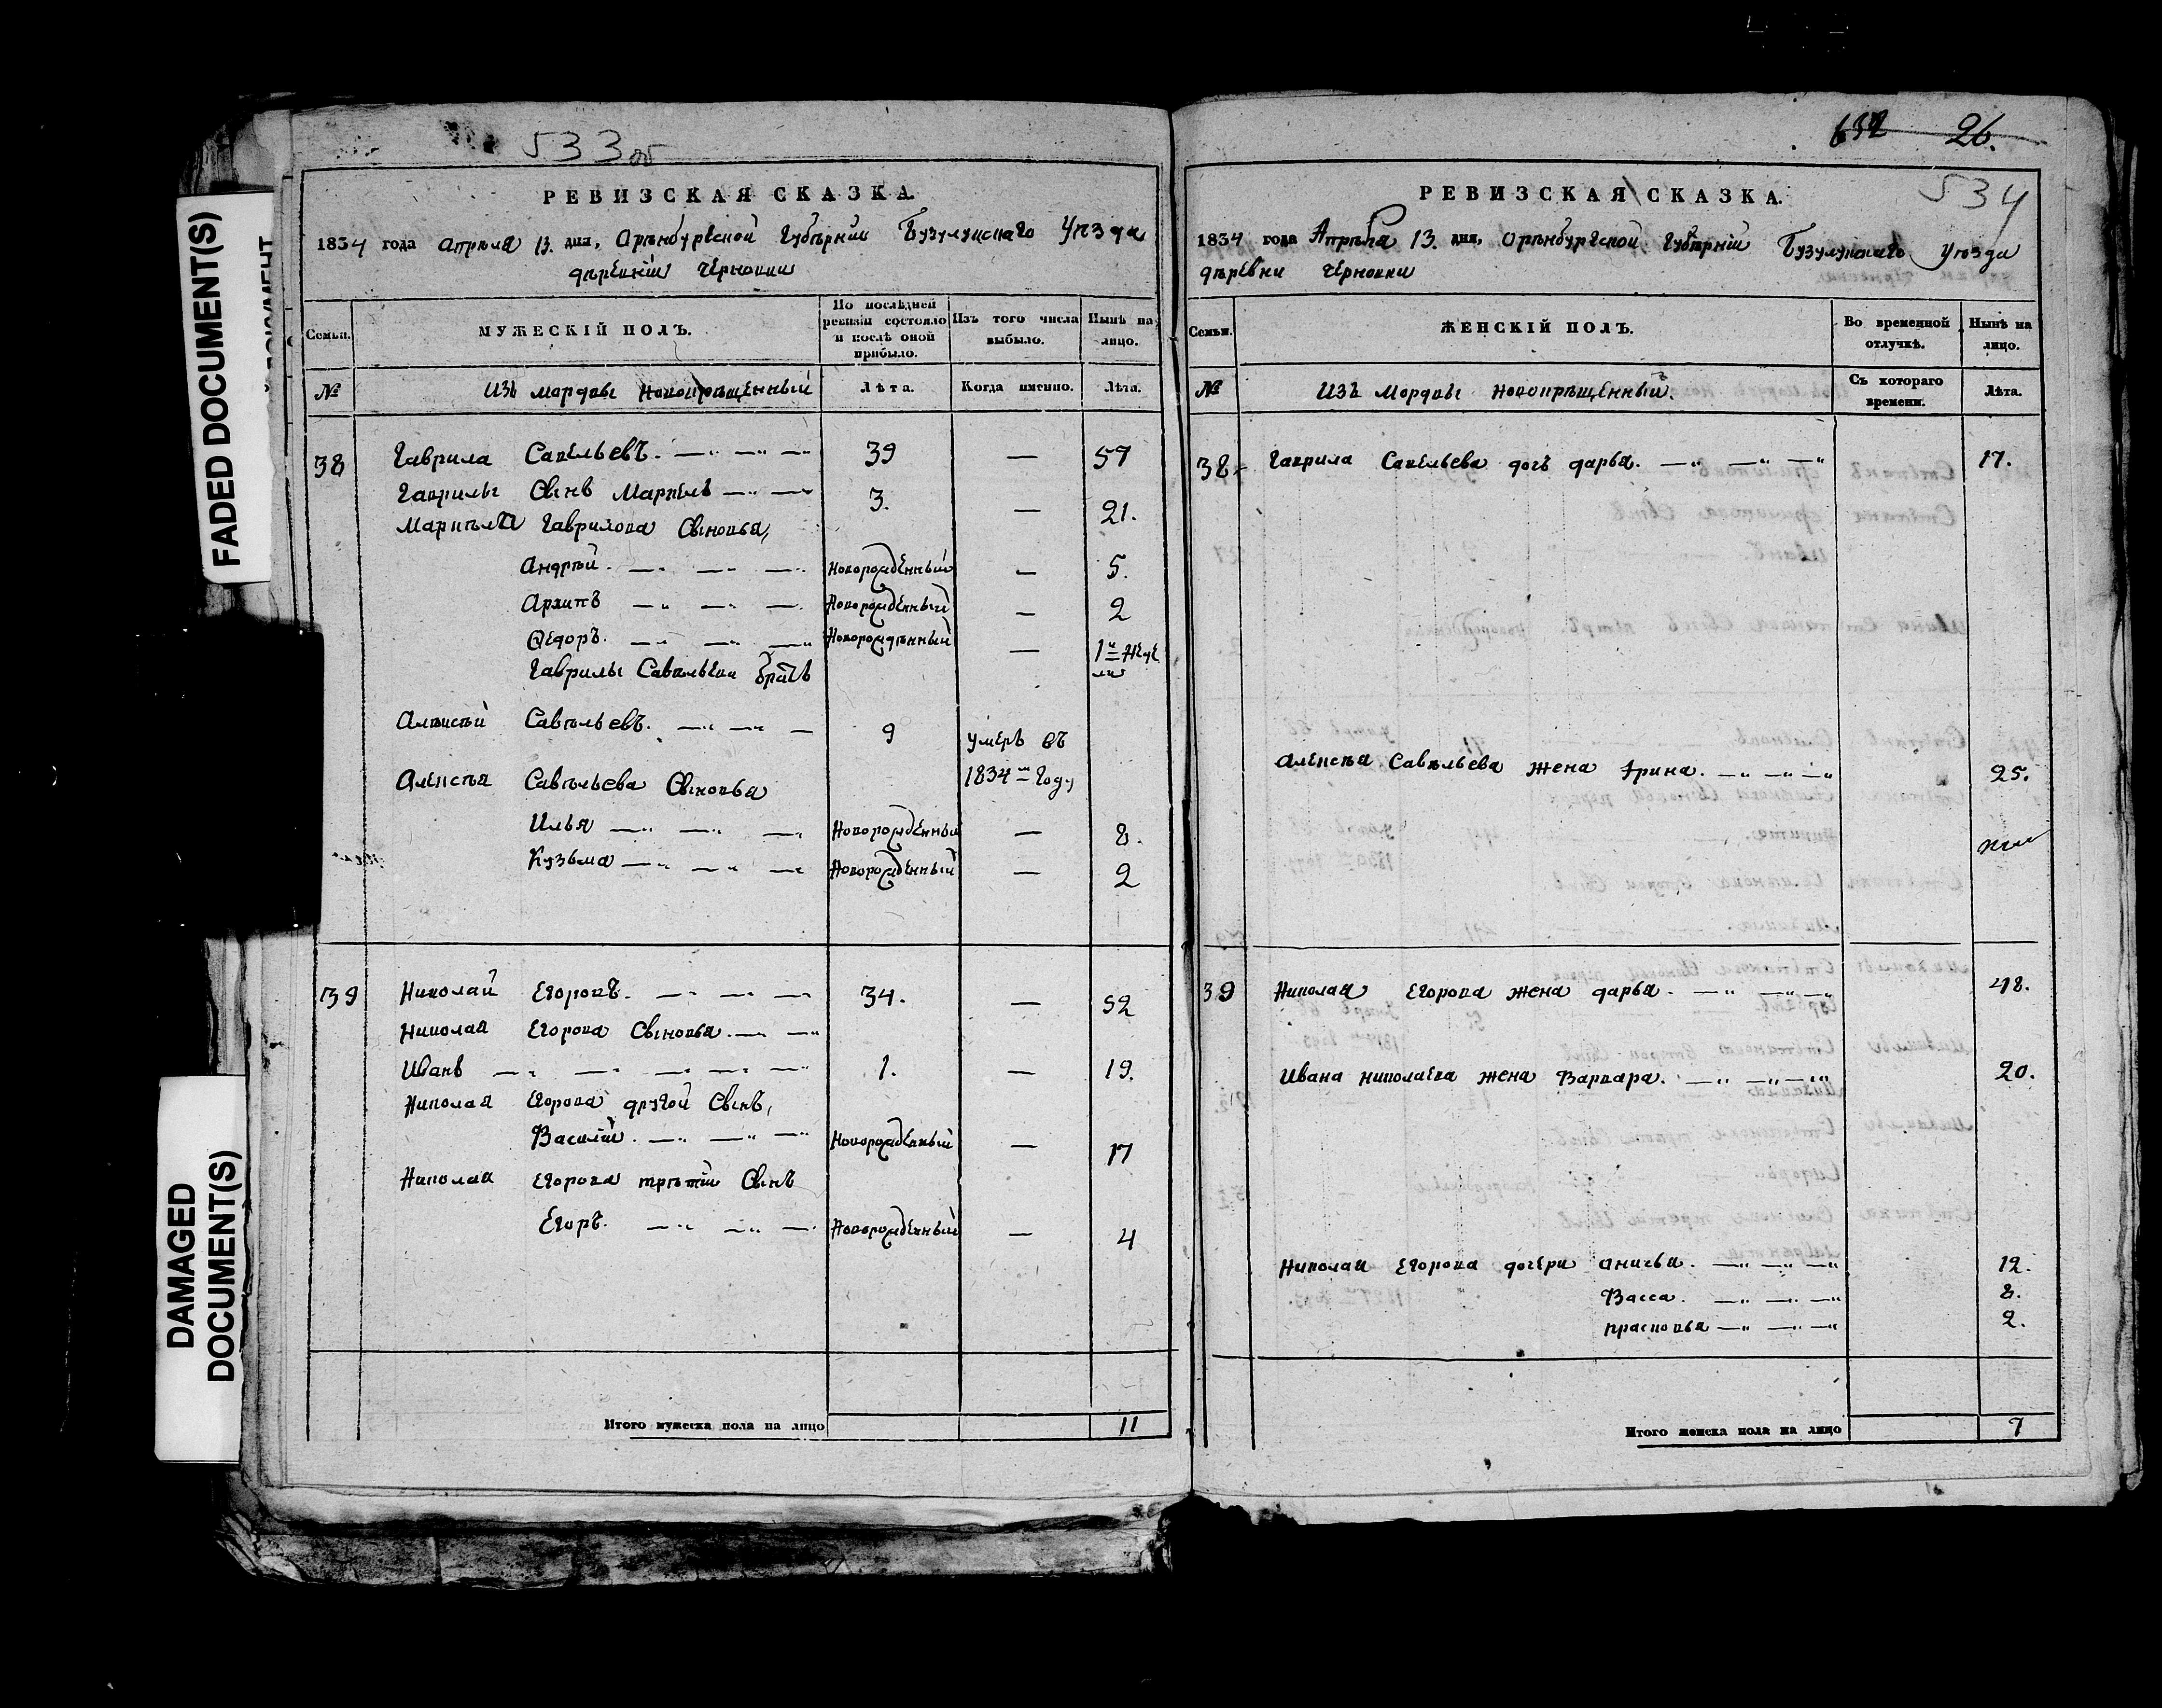 FADED DOCUMENT(S)
DAMAGED
DOCUMENT(S)
533об
РЕВИЗСКАЯ СКАЗКА
1834 года Апреля 13. дня, Оренбургской Губернии Бузулукскаго Уезда
деревни Черновки
Семьи.
МУЖЕСКІЙ ПОЛЪ.
По послѣдней ревизіи состояло и послѣ оной прибыло.
Изъ того числа выбыло.
Нынѣ на лицо.
№
Изъ мордвы Новокрещенный
Лѣта.
Когда именно.
Лѣта.
38 Гаврила Савельевъ. 39 — 57
Гаврилы Сынъ Маркелъ 3. — 21.
Маркела Гаврилова Сыновья,
Андрей. Новорожденный — 5.
Архипъ Новорожденный — 2
Ѳедоръ. Новорожденный —
Гаврилы Савельева братъ
Алексей Савельевъ. 9 умеръ въ
1834 Году
Алексея Савельева Сыновья
Илья Новорожденный — 8.
Кузьма Новорожденный — 2
39 Николай Егоровъ. 34. — 52
Николая Егорова Сыновья.
Иванъ 1. — 19.
Николая Егорова другой Сынъ,
Василій. Новорожденный — 17
Николая Егорова третій Сынъ
Егоръ. Новорожденный — 4
Итого мужеска пола на лицо 11
26.
534
РЕВИЗСКАЯ СКАЗКА.
1834 года Апреля 13. дня, Оренбургской Губерніи Бузулукскаго Уезда
деревни Черновки
Семьи.
ЖЕНСКІЙ ПОЛЪ.
Во временной отлучкѣ.
Нынѣ на лицо.
№
Изъ Мордвы Новокрещенный.
Съ котораго времени.
Лѣта.
38 Гаврила Савельева дочь дарья. 17.
Алексея Савельева жена Ирина. 25.
39 Николая Егорова жена дарья. 48.
Ивана Николаева жена Варвара. 20.
Николая Егорова дочери 12.
Васса. 8.
2.
Итого женска пола на лицо 7